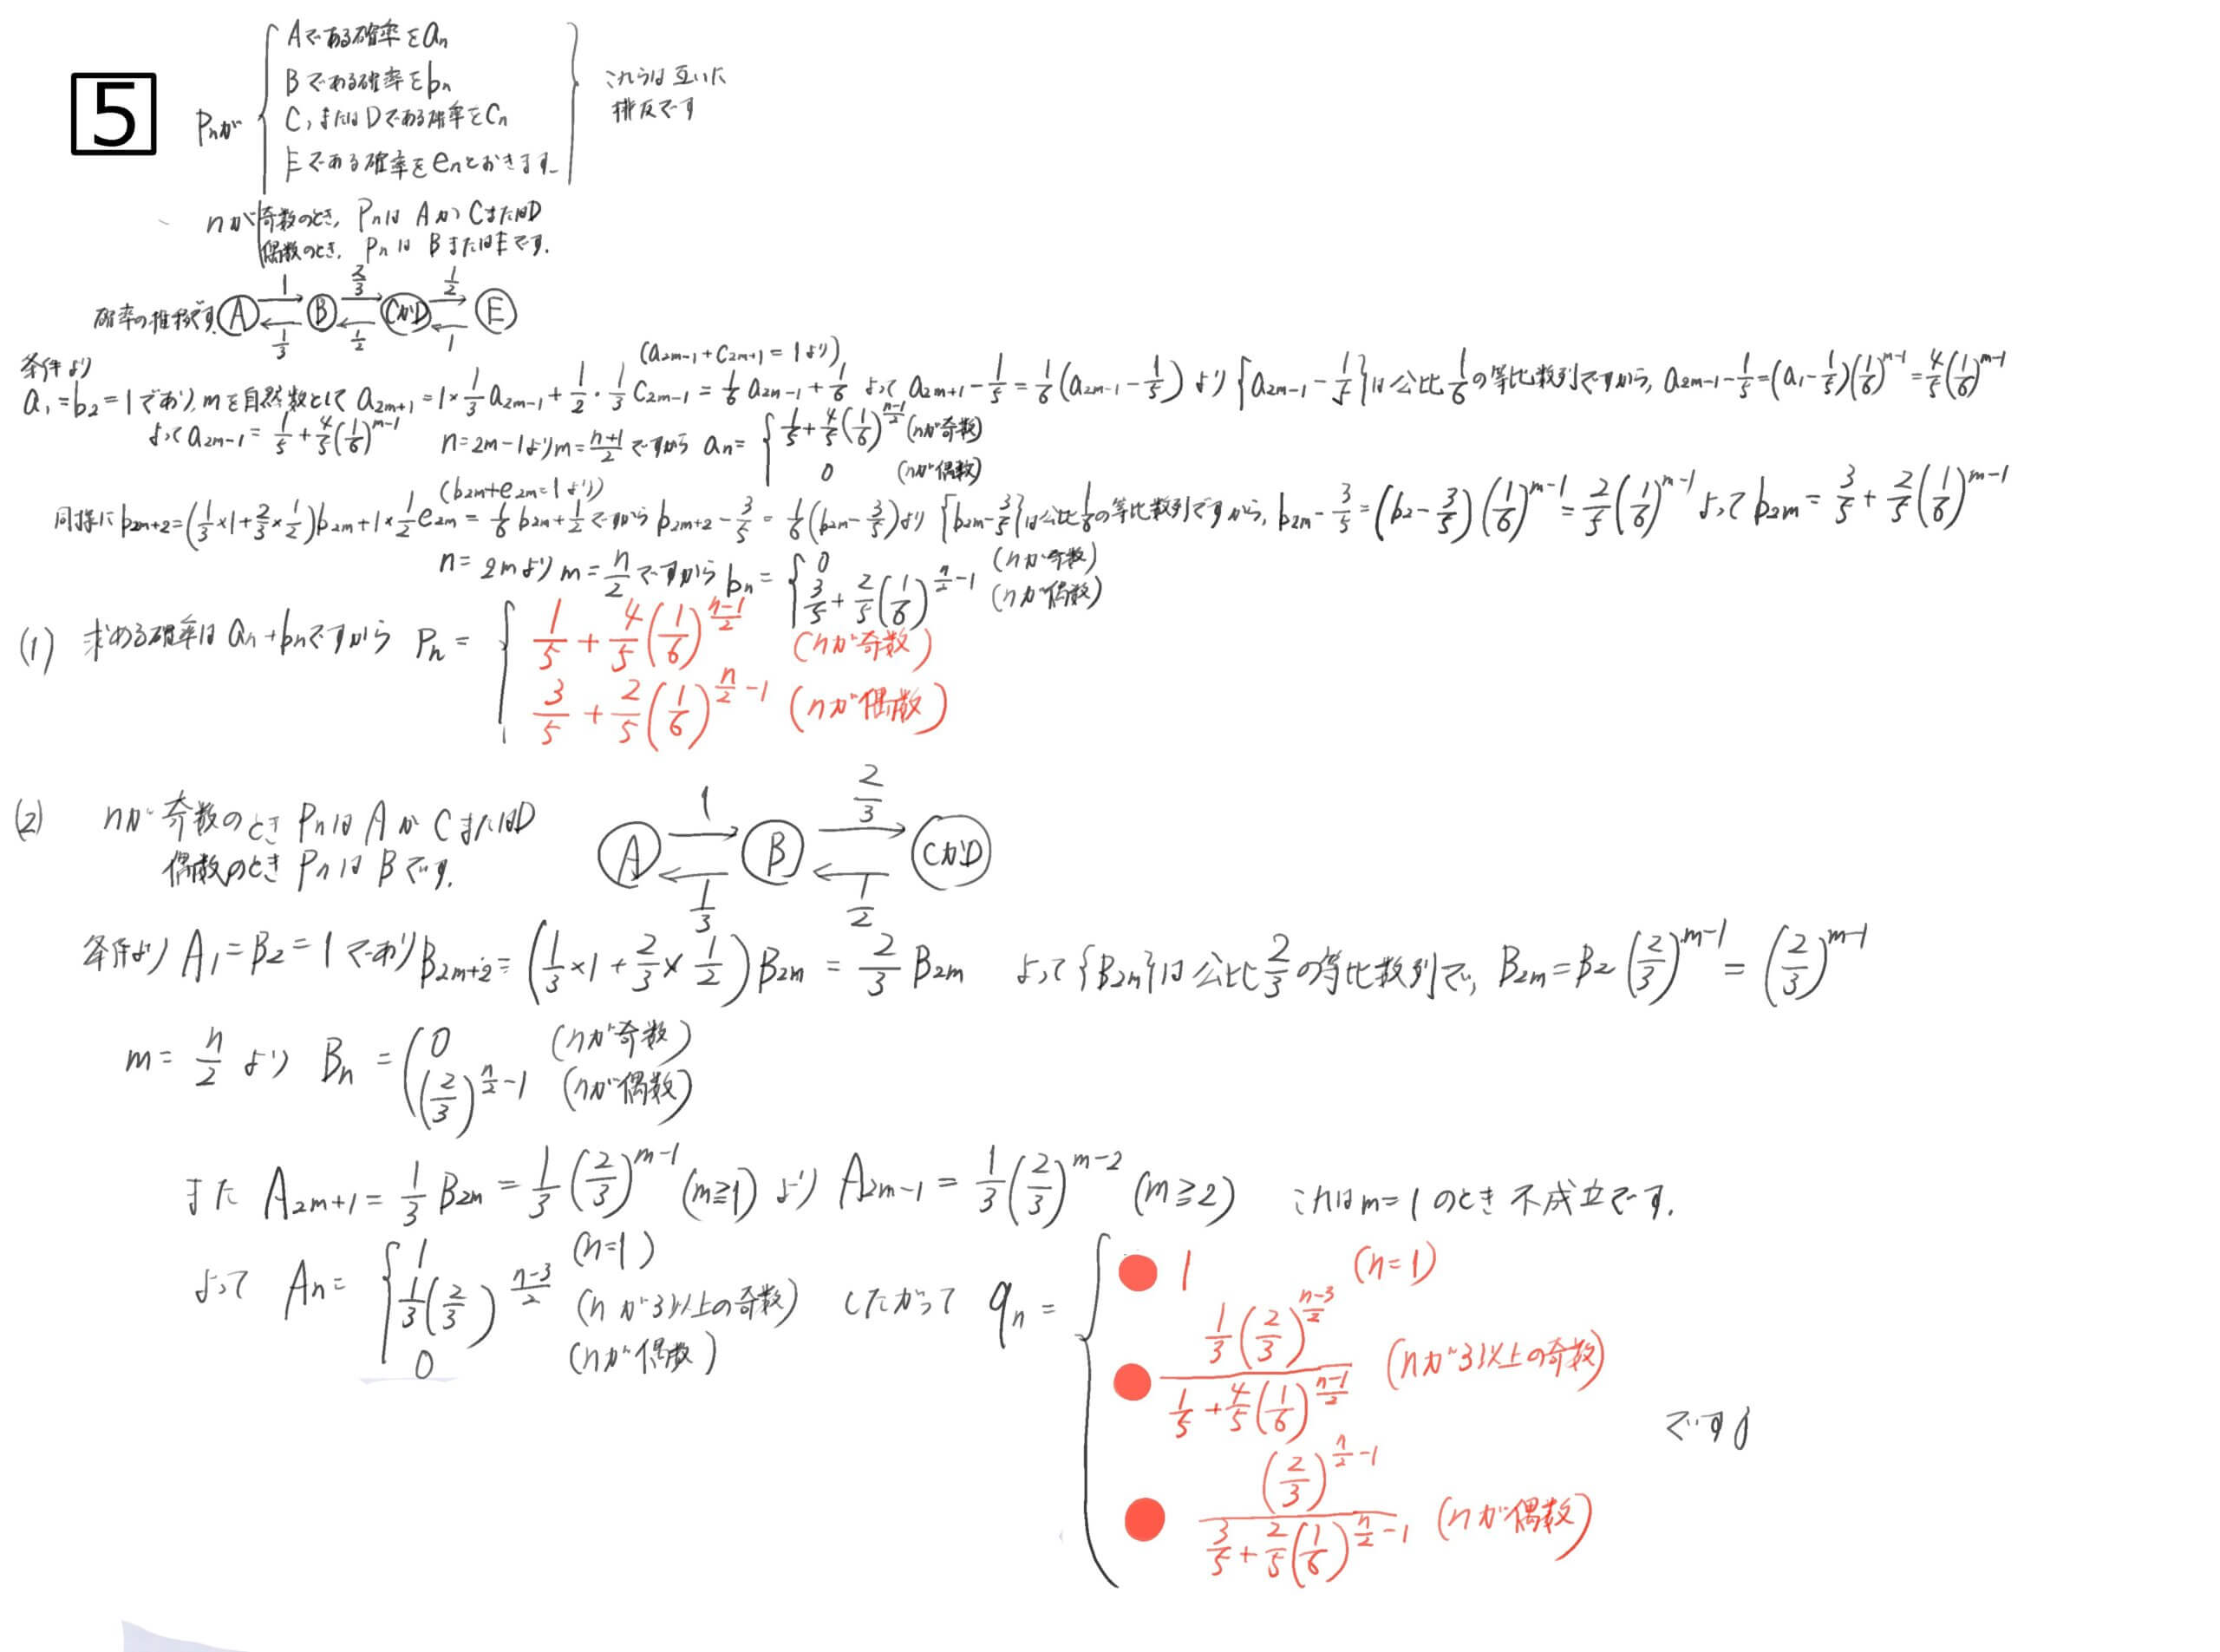 5
Pnが
Aである確率をan
Bである確率をbn
C,またはDである確率をCn
Eである確率をenとおきます
これらは互いに
排反です
nが 奇数のとき, PnはAかCまたはD
偶数のとき, PnはBまたはEです.
確率の推移です.
A 1 1/3 B 2/3 1/2 CかD 1/2 1 E
条件より
(a2m-1+C2m+1=1より)
a1=b2=1であり,mを自然数として a2m+1=1×1/3 a2m-1+1/2・1/3 C2m-1=1/6 a2m-1+1/6 よって a2m+1-1/5=1/6(a2m-1-1/5) より {a2m-1-1/5}は公比1/6の等比数列ですから, a2m-1-1/5=(a1-1/5)(1/6)^m-1=4/5(1/6)^m-1
よって a2m-1=1/5+4/5(1/6)^m-1 n=2m-1よりm=(n+1)/2ですから an={ 1/5+4/5(1/6)^(n-1)/2 (nが奇数)
0 (nが偶数)
(b2m+e2m=1より)
同様に b2m+2=(1/3×1+2/3×1/2)b2m+1×1/2 e2m=1/6 b2m+1/2 ですから b2m+2-3/5=1/6(b2m-3/5)より {b2m-3/5}は公比1/6の等比数列ですから, b2m-3/5=(b2-3/5)(1/6)^m-1=2/5(1/6)^m-1 よって b2m=3/5+2/5(1/6)^m-1
n=2mより m=n/2ですから bn={ 0 (nが奇数)
3/5+2/5(1/6)^n/2-1 (nが偶数)
(1) 求める確率は an+bnですから Pn={ 1/5+4/5(1/6)^(n-1)/2 (nが奇数)
3/5+2/5(1/6)^n/2-1 (nが偶数)
(2) nが 奇数のとき PnはAかCまたはD
偶数のとき PnはBです.
A 1 1/3 B 2/3 1/2 CかD
条件より A1=B2=1であり B2m+2=(1/3×1+2/3×1/2)B2m=2/3 B2m よって{B2m}は公比2/3の等比数列で, B2m=B2(2/3)^m-1=(2/3)^m-1
m=n/2より Bn={ 0 (nが奇数)
(2/3)^n/2-1 (nが偶数)
また A2m+1=1/3 B2m=1/3(2/3)^m-1 (m≧1)より A2m-1=1/3(2/3)^m-2 (m≧2) これはm=1のとき不成立です.
よって An={ 1 (n=1)
1/3(2/3)^(n-3)/2 (nが3以上の奇数)
0 (nが偶数)
したがって qn={ 1 (n=1)
1/3(2/3)^(n-3)/2 / 1/5+4/5(1/6)^(n-1)/2 (nが3以上の奇数)
(2/3)^n/2-1 / 3/5+2/5(1/6)^n/2-1 (nが偶数)
です